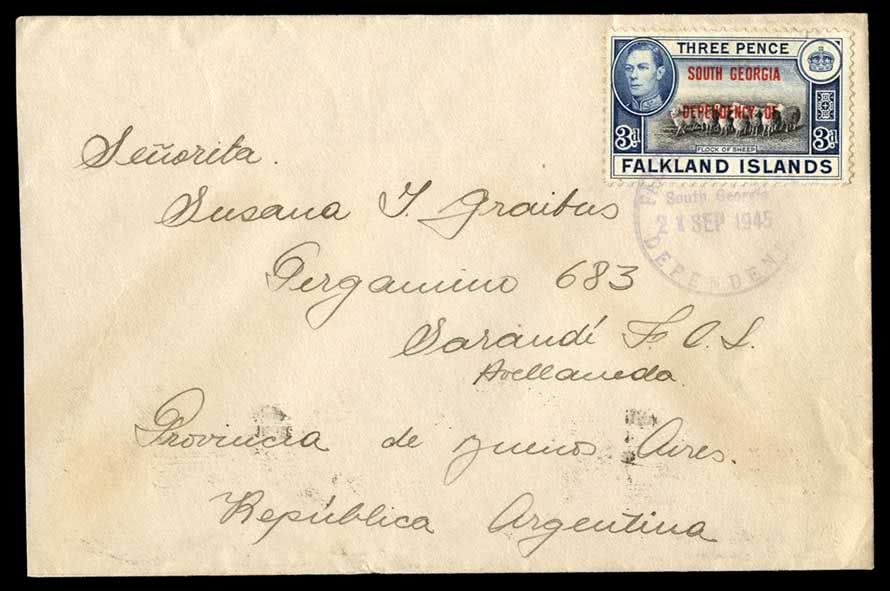 THREE PENCE
SOUTH GEORGIA
DEPENDENCY OF
3d 3d
FLOCK OF SHEEP
FALKLAND ISLANDS
South Georgia
21 SEP 1945
DEPENDEN
Señorita.
Susana I. Graibus
Pergamino 683
Sarandí F.C.S.
Avellaneda.
Provincia de Buenos Aires.
República Argentina